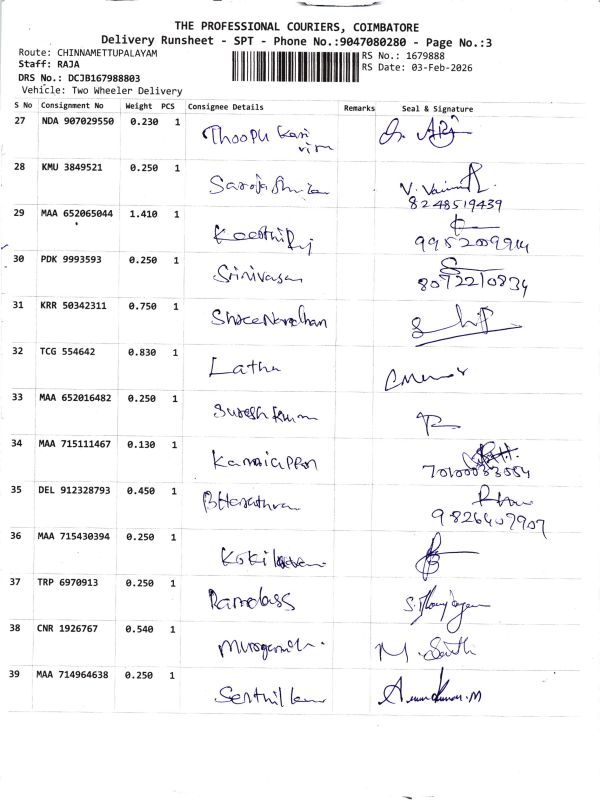 THE PROFESSIONAL COURIERS, COIMBATORE
Delivery Runsheet - SPT - Phone No.:9047080280 - Page No.:3
Route: CHINNAMETTUPALAYAM
RS No.: 1679888
Staff: RAJA
RS Date: 03-Feb-2026
DRS No.: DCJB167988803
Vehicle: Two Wheeler Delivery
S No Consignment No Weight PCS Consignee Details Remarks Seal & Signature
27 NDA 907029550 0.230 1 Thoophu Kari
28 KMU 3849521 0.250 1
8248519439
29 MAA 652065044 1.410 1 KeerthiRaj
9952009914
30 PDK 9993593 0.250 1 Srinivasan
8072210834
31 KRR 50342311 0.750 1
32 TCG 554642 0.830 1 Latha
33 MAA 652016482 0.250 1 Suresh Kumar
34 MAA 715111467 0.130 1 Kanniappan
7010033054
35 DEL 912328793 0.450 1 Bharathram
9826407907
36 MAA 715430394 0.250 1
37 TRP 6970913 0.250 1 Ramdoss
38 CNR 1926767 0.540 1 M.
39 MAA 714964638 0.250 1 Senthil Kumar